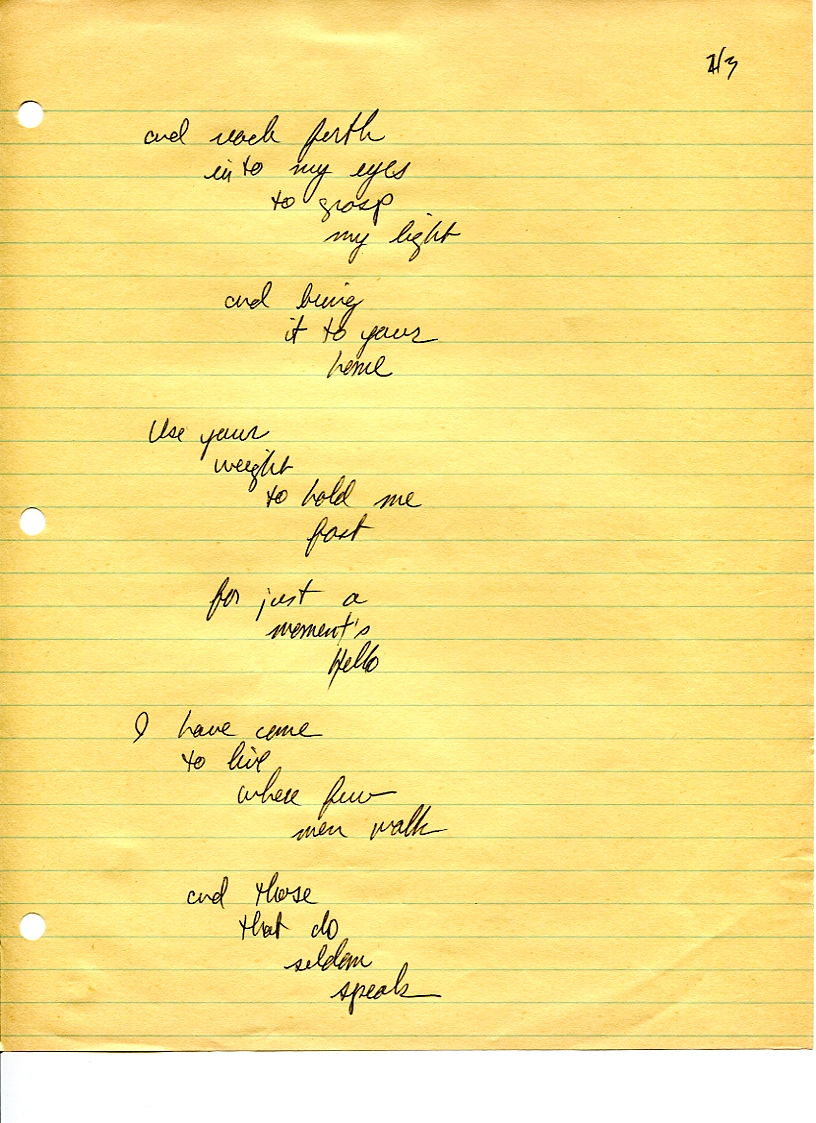 and reach forth
into my eyes
to grasp
my light
and bring
it to your
home
Use your
weight
to hold me
fast
for just a
moment's
Hello
I have come
to live
where few
men walk
and those
that do
seldom
speak